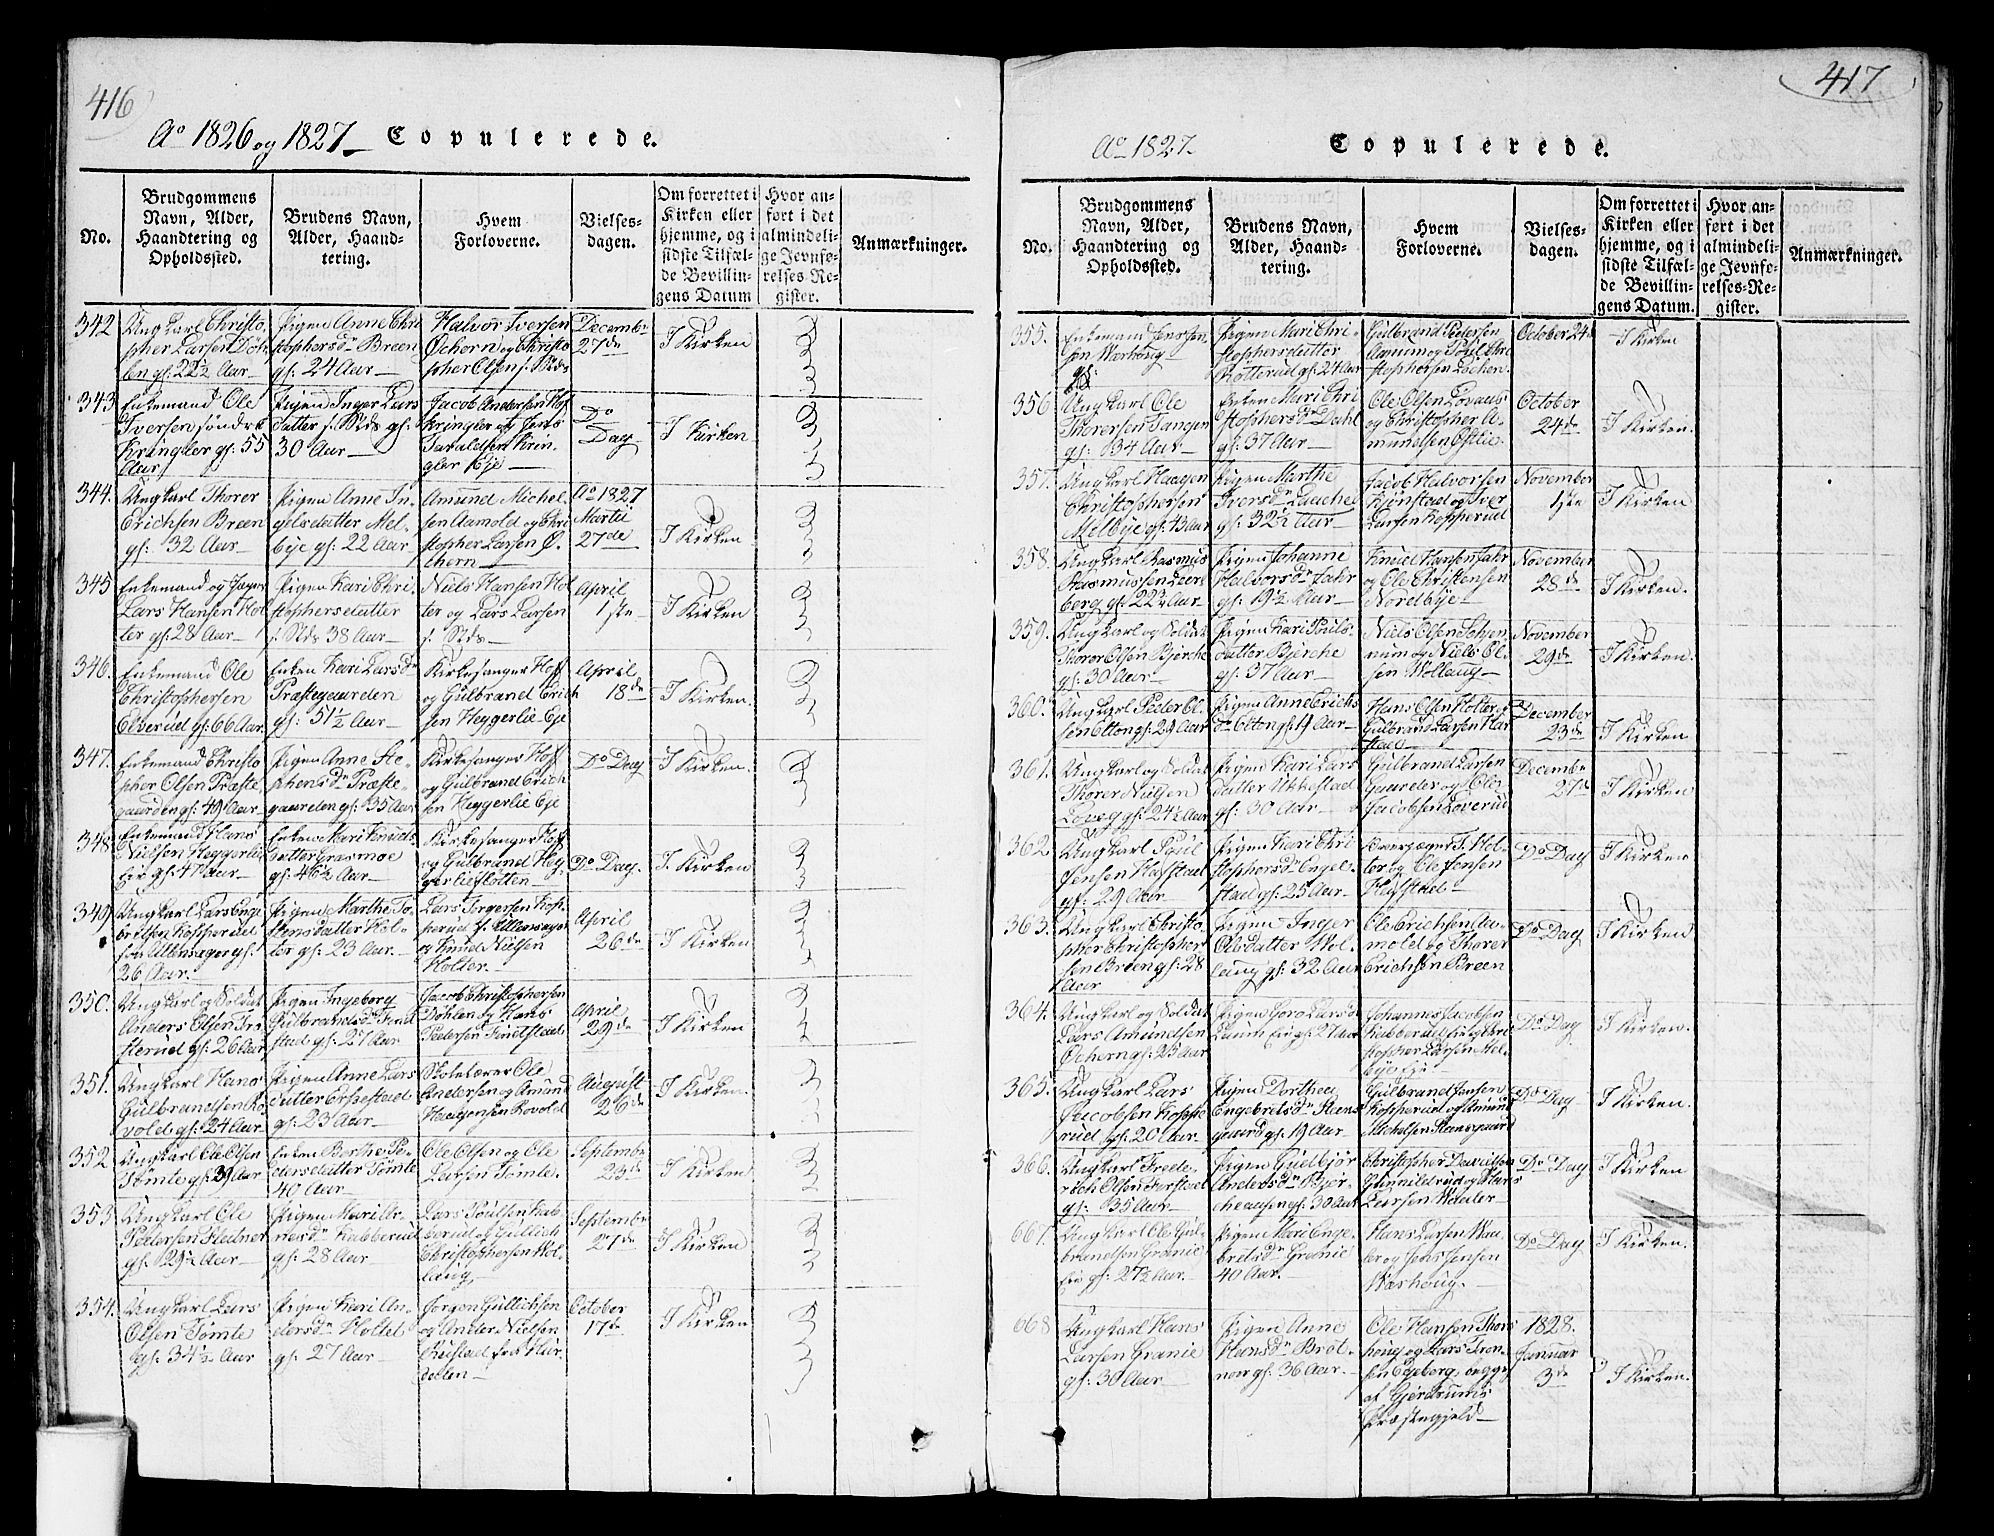 416
Ao 1826 og 1827 Copulerede.
No.
Brudgommens Navn, Alder, Haandtering og Opholdssted.
Brudens Navn, Alder, Haandtering.
Hvem Forloverne.
Vielsesdagen.
Om forrettet i Kirken eller hjemme, og i sidste Tilfælde Bevillingens Datum
Hvor anført i det almindelige Jevnførelses-Register.
Anmærkninger.
342
Ungkarl Christo
pher Larsen Døh
len gl: 22½ Aar
Pigen Anne Chri
stophersdr Breen
gl: 24 Aar
Halvor Iversen
Ochern og Christo
pher Olsen
Decembr
27de
I Kirken
343
Enkemand Ole
Iversen søndre
Kringler gl: 55
Aar
Pigen Inger Lars
datter s: Stds gl:
30 Aar
Jacob Andersen Hof
kringler og Jens
Taraldsen Krin
gler Eje
Do
Day
I Kirken
344.
Ungkarl Thorer
Erichsen Breen
gl: 32 Aar
Pigen Anne In
gelsdatter Mel
bye gl: 22 Aar
Amund Michel
sen Aamold og Chri
stopher Larsen O
chern
Ao 1827
Martii
27de
I Kirken
345
Enkemand og Jæger
Lars Hansen Hol
ter gl: 28 Aar
Pigen Kari Chri
stophersdatter
s: Stds 38 Aar
Niels Hansen Hol
ter og Lars Larsen
s: Stds
April
1ste
I Kirken
346.
Enkemand Ole
Christophersen
Elverud gl: 66 Aar
Enken Kari Larsdr
Præstegaarden
gl: 51½ Aar
Kirkesanger Hoff
og Gulbrand Erich
sen Heggerlie Eje
April
18de
I Kirken.
347.
Enkemand Christo
pher Olsen Præste
gaarden gl: 49 Aar
Pigen Anne Ste
phensdr Præste
gaarden gl: 35 Aar
Kirkesanger Hoff
og Gulbrand Erich
sen Heggerlie Eje
Do Day
I Kirken.
348
Enkemand Hans
Nielsen Heggerlie
Eie gl: 47 Aar
Enken Mari Knuds
datter Grasmoe
gl: 46½ Aar
Kirkesanger Hoff
og Gulbrand Heg
gerlie
Do Day.
I Kirken
349
Ungkarl Lars Enge
bretsen Kopperud
fra Ullensager gl:
26 Aar.
Pigen Marthe To
stensdatter Hol
ter gl: 23 Aar
Lars Torgersen Kop
perud f. Ullensager
og Knud Nielsen
Holter
April
26de
I Kirken
350.
Ungkarl og Soldat
Anders Olsen
gl: 26 Aar
Pigen Ingeborg
Gulbrandsdr Tend
stad gl: 27 Aar
Jacob Christophersen
Døhlen og Hans
Pedersen Findstad
April
29de
I Kirken
351.
Ungkarl Hans
Gulbrandsen Ro
vold gl: 24 Aar
Pigen Anne Lars
datter
gl: 23 Aar
Skolelærer Ole
Andersen og Amund
Haagensen Rovold
August
26de
I Kirken.
352
Ungkarl Ole Olsen
Tømte gl: 39 Aar
Enken Berthe Pe
dersdatter Tømte
40 Aar
Ole Olsen og Ole
Larsen Tømte
Septembr
23de
I Kirken
353
Ungkarl Ole
Pedersen
gl: 29½ Aar
Pigen Mari Ar
nesdr Kabberud
gl: 28 Aar
Lars Poulsen Kab
berud og Gullich
Christophersen Hol
laug
Septembr
27de
I Kirken
354.
Ungkarl Lars
Olsen Tømte
gl: 34½ Aar
Pigen Kari An
dersdr Holtet
gl: 27 Aar
Jørgen Gullichsen
og Anders Nielsen
fra Hur
dalen
October
17de
I Kirken
417
Ao 1827
Copulerede.
No.
Brudgommens Navn, Alder, Haandtering og Opholdssted.
Brudens Navn, Alder, Haandtering.
Hvem Forloverne.
Vielsesdagen.
Om forrettet i Kirken eller hjemme, og i sidste Tilfælde Bevillingens Datum.
Hvor anført i det almindelige Jevnførelses-Register.
Anmærkninger.
355.
Enkemand Jens Jen
sen Warhoug
gl:
Pigen Mari Chri
stophersdatter
Rotterud gl: 24 Aar
Gulbrand Pedersen
Aamum og Poul Chri
stophersen
October 24de
I Kirken
356
Ungkarl Ole
Thorersen Tangen
gl: 34 Aar
Enken Mari Chri
stophersdr Dahl
gl: 37 Aar
Ole Olsen
og Christopher A
mundsen Østlie
October
24de
I Kirken.
357.
Ungkarl Haagen
Christophersen
Melbye gl: 43 Aar
Pigen Marthe
Iversdr
gl: 32½ Aar
Jacob Halvorsen
Kjønstad og Iver
Larsen Kopperud
November
1ste
I Kirken
358.
Ungkarl Rasmus
Rasmussen
berg gl: 22¼ Aar
Pigen Johanne
Halvorsdr Jahr
gl: 19½ Aar
Knud Hansen Jahr
og Ole Christensen
Nordbye
November
28de
I Kirken.
359.
Ungkarl og Soldat
Thorer Olsen Bjerche
gl: 30 Aar
Pigen Kari Pouls
datter Bjerche
gl: 37 Aar
Niels Olsen
og Niels Ol
sen Wollaug
November
29de
I Kirken.
360.
Ungkarl Peder Ol
sen Elton gl: 29 Aar
Pigen Anne Erichs
dr Elton gl: Aar
Hans Olsen Holter og
Gulbrand Larsen Har
stad
December
23de
I Kirken
361.
Ungkarl og Soldat
Thorer Nielsen
Løveg gl: 24½ Aar
Pigen Kari Lars
datter Ukkestad
gl: 30 Aar
Gulbrand Larsen
Gaarder og Ole
Jacobsen Loverud
Decembr
27de
I Kirken
362
Ungkarl Poul
Jensen Hafstad
gl: 29 Aar
Pigen Kari Chri
stophersdr Engel
stad gl: 25 Aar
T. Hol
ter og Ole Jensen
Hafstad
Do Day
I Kirken
363.
Ungkarl Christo
pher Christopher
sen Breen gl: 28
Aar
Pigen Inger
Olesdatter Wol
laug gl: 32 Aar
Ole Erichsen Aa
mold og Thorer
Erichsen Breen
Do Day
I Kirken
364.
Ungkarl og Soldat
Lars Amundsen
Ochern gl: 25 Aar
Pigen Goro Larsdr
Laum Eie gl: 27 Aar
Johannes Jacobsen
Kabberud Eie og Chri
stopher Larsen Mel
bye Eie
Do Day
I Kirken.
365.
Ungkarl Lars
Jacobsen Koppe
rud gl: 20 Aar
Pigen Dorthea
Engebretsdr Steens
gaard gl: 19 Aar
Gulbrand Jensen
Kopperud og Amund
Michelsen Steensgaard
Do Day
I Kirken.
366.
Ungkarl Frede
rich Olsen
gl: 35 Aar
Pigen Gudbjør
Andersdr Bjer
chaasen gl: 30 Aar
Christopher Davidsen
Gunnildrud og Lars
Larsen Waaler
Do Day
I Kirken
667.
Ungkarl Ole Gul
brandsen Granie
Eie gl: 27½ Aar.
Pigen Mari Enge
bretsdr Granie
40 Aar.
Hans Larsen Waa
ler og Jens Jensen
Warhoug.
Do Day
I Kirken.
668
Ungkarl Hans
Larsen Granie
gl: 30 Aar
Pigen Anne
Hansdr Brot
noe gl: 36 Aar.
Ole Hansen Thors
houg og Lars Tron
sen Egeborg, begge
af Gjerdrums
Præstegjeld
1828.
Januar
3de
I Kirken.